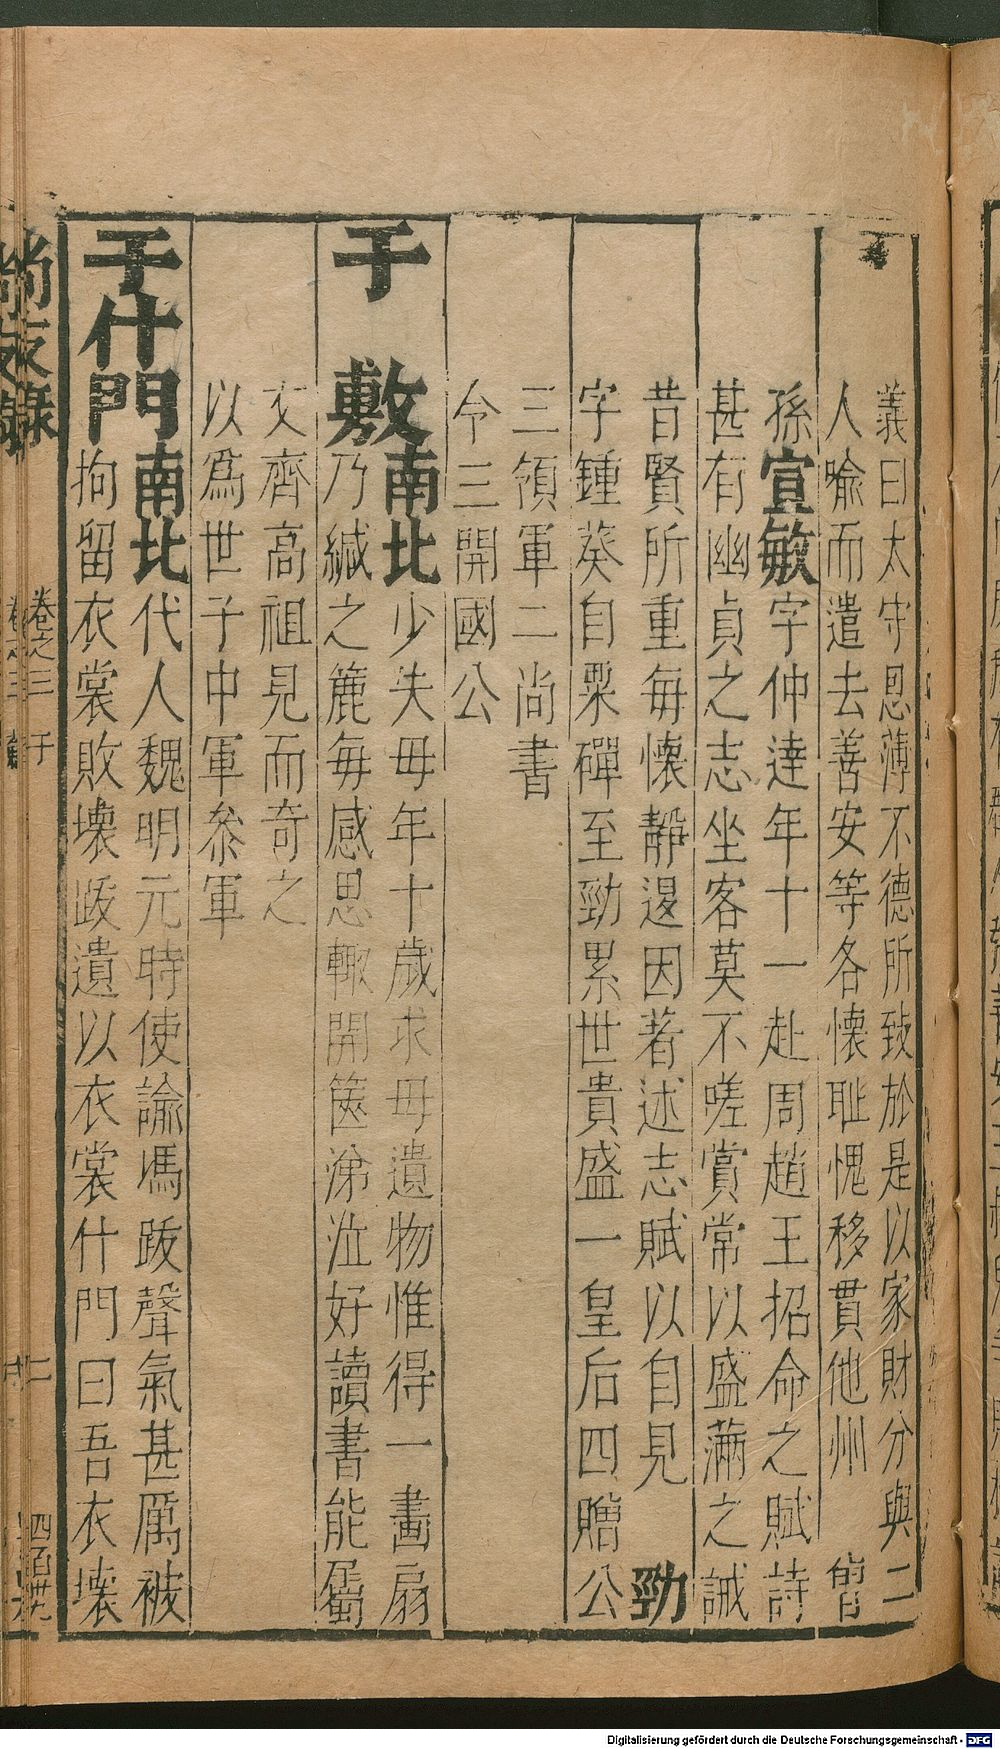 義曰太守恩薄不德所致於是以家財分與二
人喻而遣去善安等各懷恥愧移貫他州 曾
孫宣敏字仲達年十一赴周趙王招命之賦詩
甚有幽貞之志坐客莫不嗟賞常以盛滿之誡
昔賢所重每懷靜退因著述志賦以自見 勁
字鍾葵自栗磾至勁累世貴盛一皇后四贈公
三領軍二尚書
令三開國公
于 敷南北少失母年十歲求母遺物惟得一畫扇
乃緘之簏每感思輙開篋涕泣好讀書能屬
文齊高祖見而奇之
以爲世子中軍叅軍
于什門南北代人魏明元時使諭馮跋聲氣甚厲被
拘留衣裳敗壊跋遺以衣裳什門曰吾衣壊
尚友錄 卷之三 于 二 四百廿九
Digitalisierung gefördert durch die Deutsche Forschungsgemeinschaft - DFG